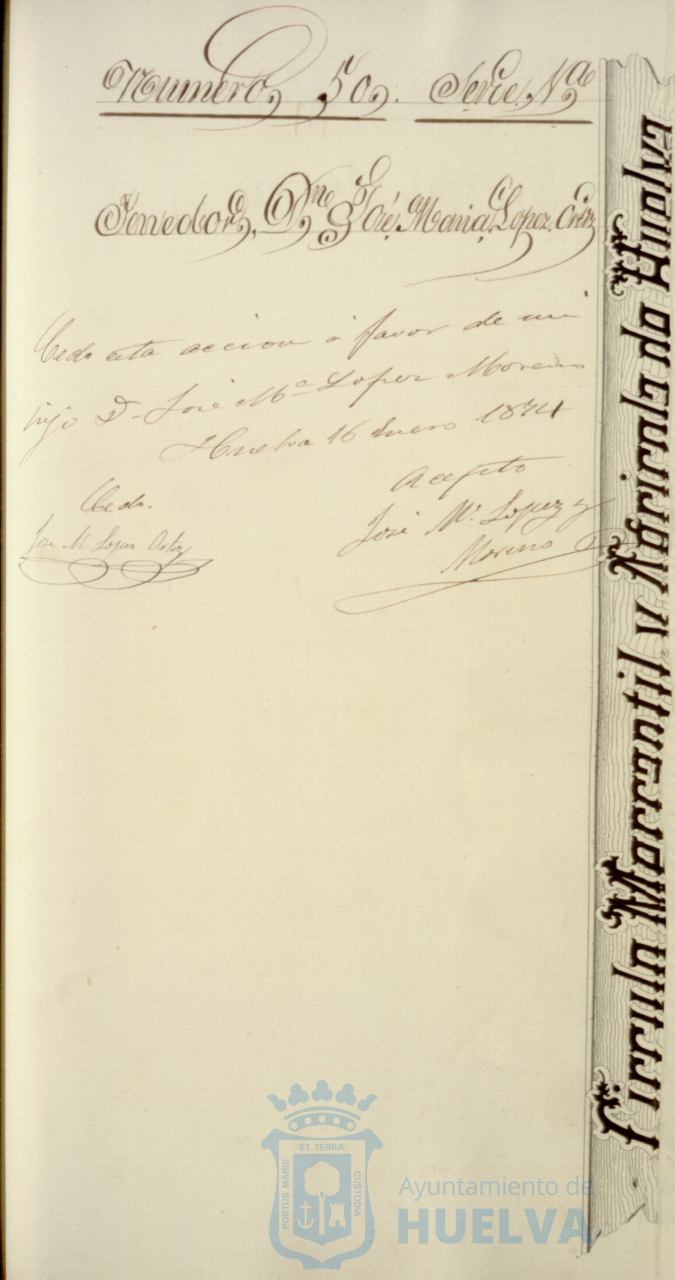 Numero 50. Serie Nª
Tenedor, Dⁿ José Maria Lopez Ortiz
Cedo esta accion á favor de mi
hijo D. José Mª Lopez Moreno
Huelva 16 Enero 1874
Acepto
Cedo.
José Mª Lopez y
Moreno
Jose M Lopez Ortiz
Circulo Mercantil y Agricola de Huelva
ET TERRÆ
PORTUS MARIS
CUSTODIA
Ayuntamiento de
HUELVA